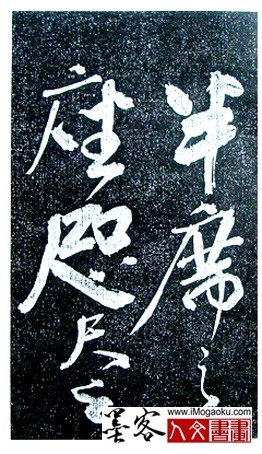 半席之
座咫尺
墨客
www.iMogaoku.com
人文書畫